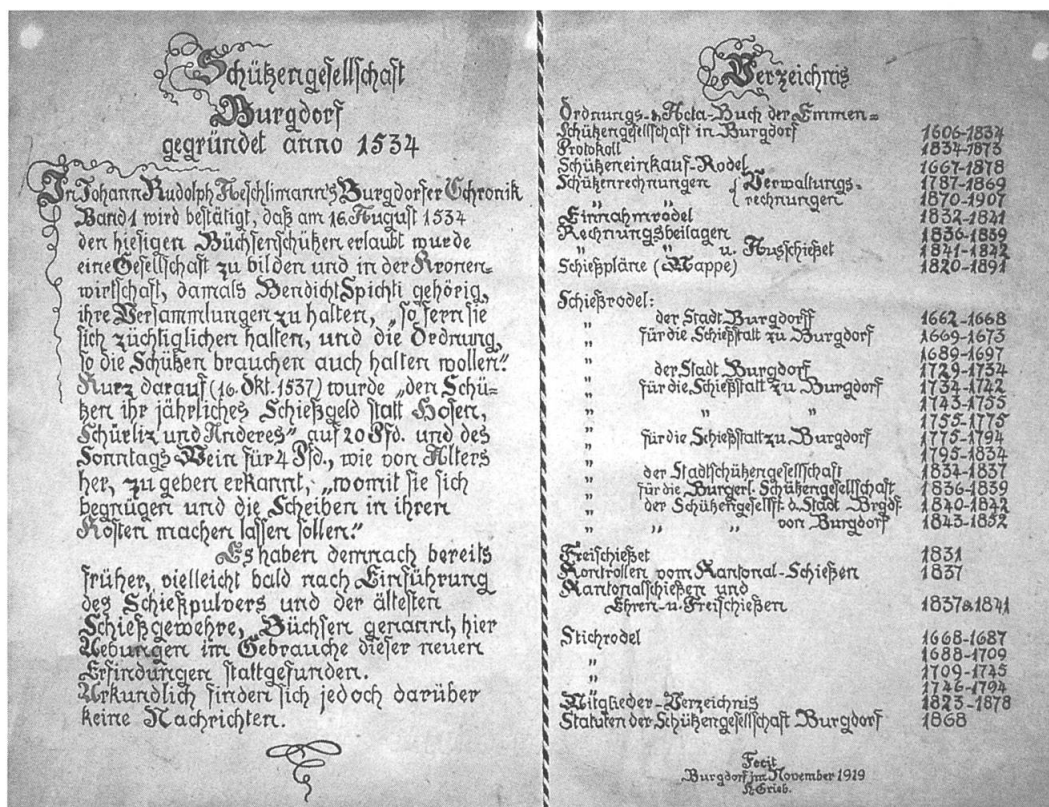 Schützengesellschaft
Burgdorf
gegründet anno 1534
In Johann Rudolph Aeschlimann's Burgdorfer Chronik
Band 1 wird bestätigt, daß am 16. August 1534
den hiesigen Büchsenschützen erlaubt wurde
eine Gesellschaft zu bilden und in der Kronen-
wirtschaft, damals Bendicht Spichti gehörig,
ihre Versammlungen zu halten, „so fern sie
sich züchtiglichen halten, und die Ordnung,
so die Schützen brauchen auch halten wollen."
Kurz darauf (16. Okt. 1537) wurde „den Schü-
tzen ihr jährliches Schießgeld statt Hosen,
Schürliz und Anderes" auf 20 Pfd. und des
Sonntags Wein für 4 Pfd., wie von Alters
her, zu geben erkannt, „womit sie sich
begnügen und die Scheiben in ihren
Kosten machen lassen sollen."
Es haben demnach bereits
früher, vielleicht bald nach Einführung
des Schießpulvers und der ältesten
Schießgewehre, Büchsen genannt, hier
Uebungen im Gebrauche dieser neuen
Erfindungen stattgefunden.
Urkundlich finden sich jedoch darüber
keine Nachrichten.
Verzeichnis
Ordnungs- & Acta-Buch der Emmen=
Schützengesellschaft in Burgdorf 1606-1834
Protokoll 1834-1873
Schützeneinkauf-Rodel 1667-1878
Schützenrechnungen { Verwaltungs- 1787-1869
„ „ { rechnungen 1870-1907
Einnahmrodel 1832-1841
Rechnungsbeilagen 1836-1859
„ u. Ausschießet 1841-1842
Schießpläne (Mappe) 1820-1891
Schießrodel:
„ der Stadt Burgdorff 1662-1668
„ für die Schießstatt zu Burgdorf 1669-1673
„ 1689-1697
„ der Stadt Burgdorf 1729-1734
„ für die Schießstatt zu Burgdorf 1734-1742
„ 1743-1755
„ „ „ 1755-1775
„ für die Schießstatt zu Burgdorf 1775-1794
„ 1795-1834
„ der Stadtschützengesellschaft 1834-1837
„ für die Burgerl. Schützengesellschaft 1836-1839
„ der Schützengesellst. d. Stadt Brgdf. 1840-1842
„ „ „ von Burgdorf 1843-1852
Freischießet 1831
Kontrollen vom Kantonal-Schießen 1837
Kantonalschießen und
Ehren- u. Freischießen 1837 & 1841
Stichrodel 1668-1687
„ 1688-1709
„ 1709-1745
1746-1794
Mitglieder-Verzeichnis 1823-1878
Statuten der Schützengesellschaft Burgdorf 1868
Fecit
Burgdorf im November 1919
H. Grieb.